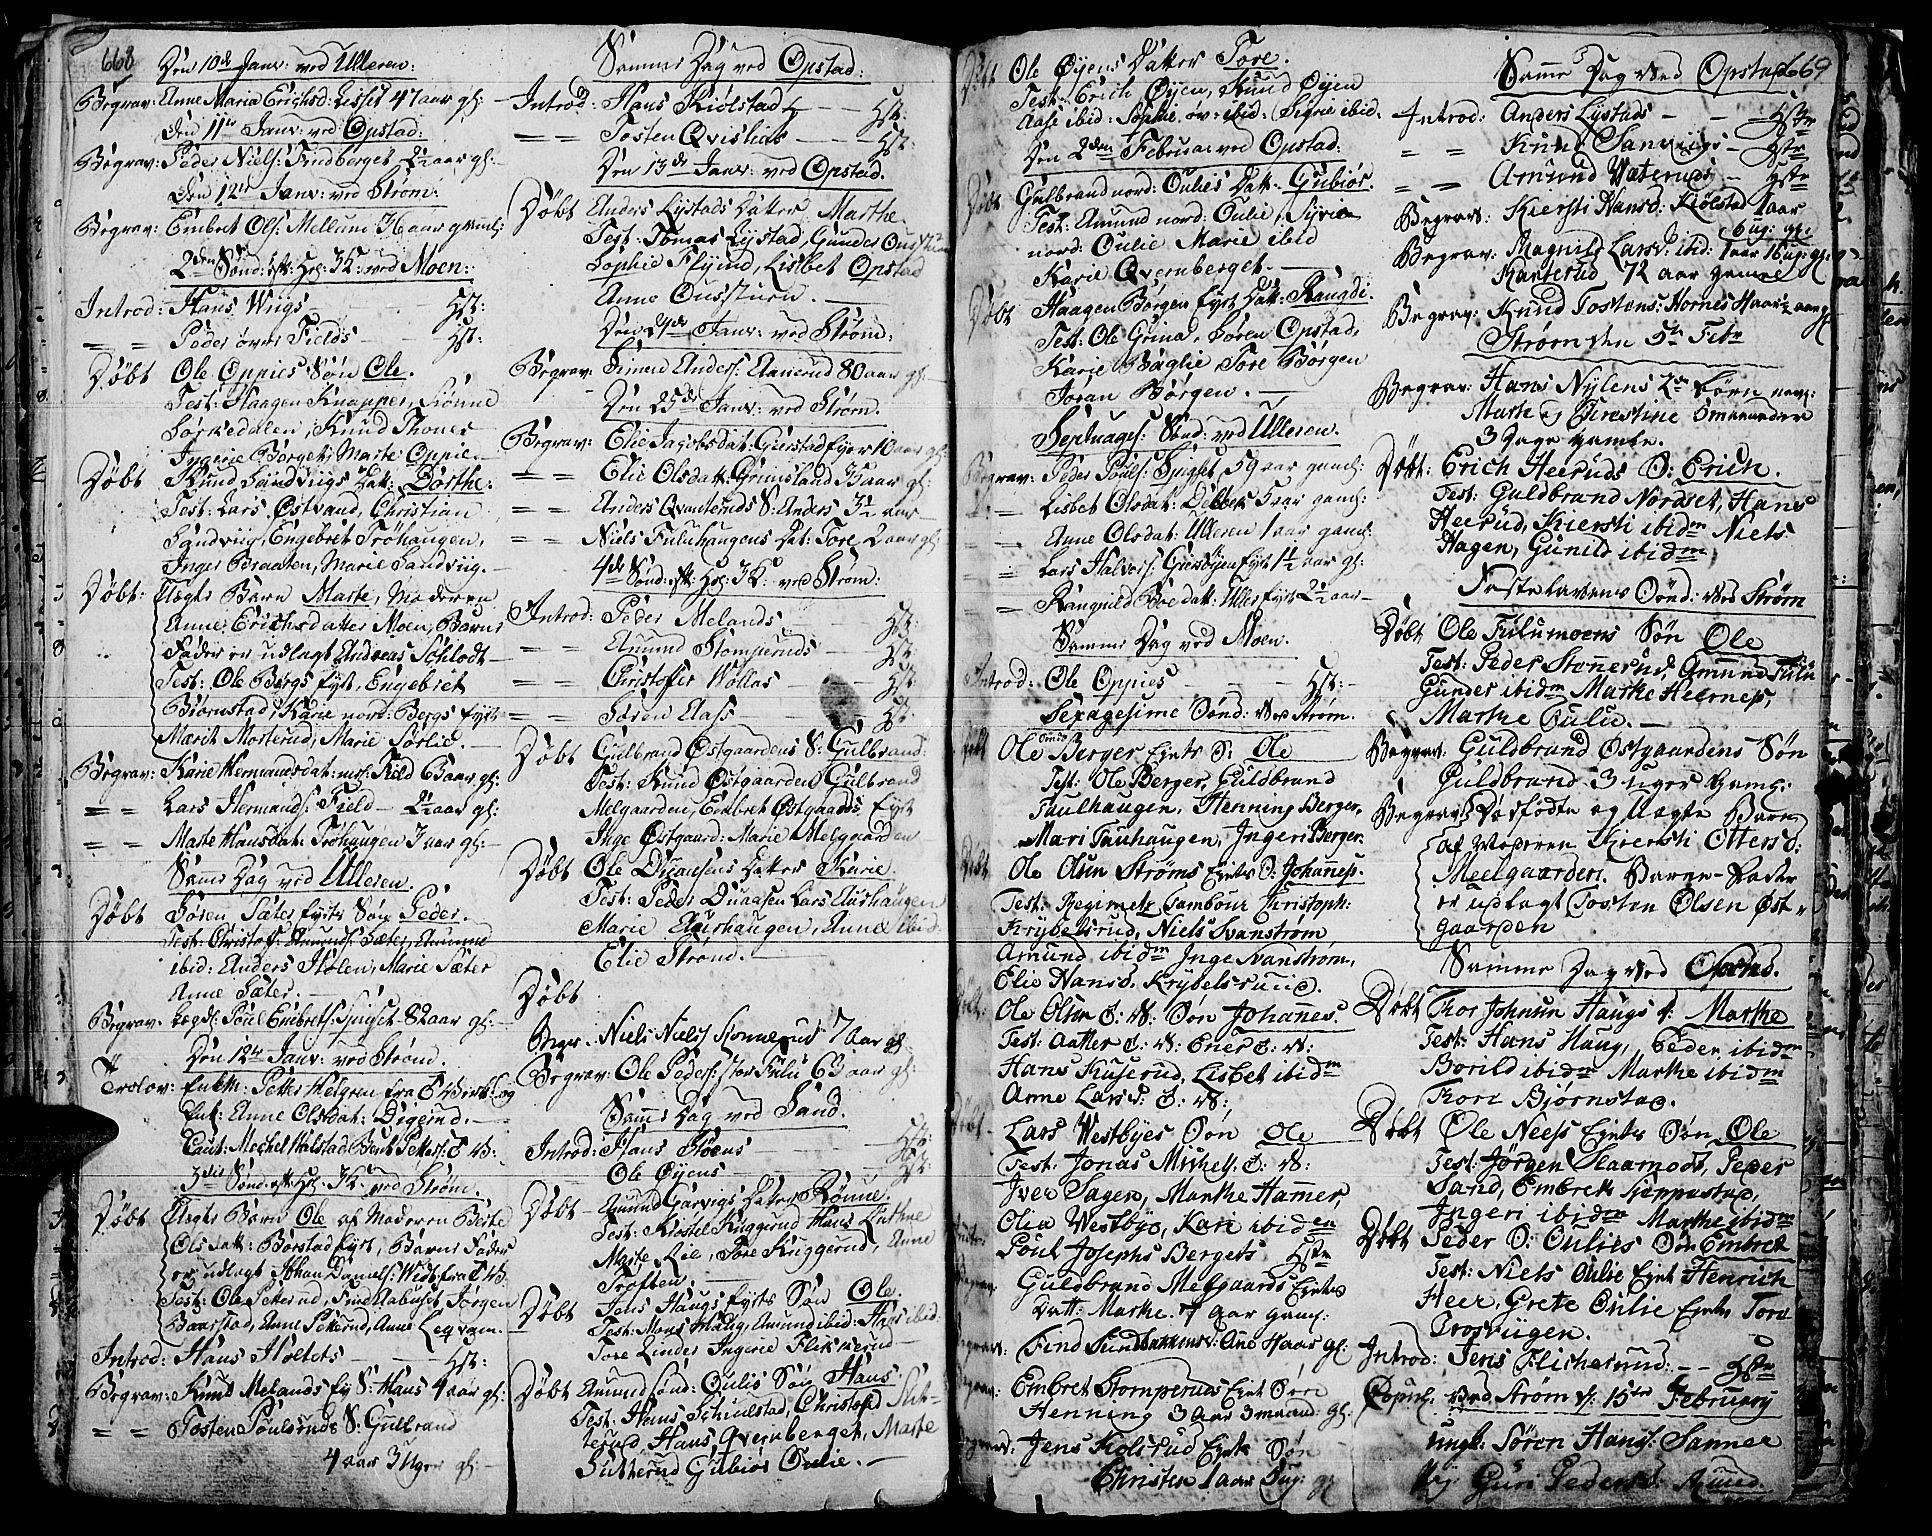 668
Den 10de Janv: ved Ulleren:
Begrav: Anne Maria Erichsd: Lisset 47 aar gl:
Den 11te Janv: ved Opstad:
Begrav: Peder Niels: Findberget 2½ aar gl:
Den 12te Janv: ved Strøm:
Begrav: Embret Ols: Mellum 36 aar gamml:
2den Sønd: eft: Hel: 3K: ved Moen:
Introd: Hans Wiigs Hst:
= = Peder øvre Fields Hst:
Døbt Ole Oppies Søn Ole.
Test: Haagen Knapper, Rønne
Sørkedalen, Knud Thoner
Ingerie Berget, Marte Oppie.
Døbt Knud Sandviigs Dat: Dorthe:
Test: Lars Østvand, Christian
Sandviig, Engebret Trøhaugen,
Inger Braaten, Marie Sandviig.
Døbt: Uægte Barn Marte, Moderen
Anne Erichsdatter Moen, Barns
Fader er udlagt Andreas Schlodt
Test: Ole Bergs Eyet, Engebret
Biørnstad, Karie nord: Bergs Eyet
Mærit Morterud, Marie Sørlie.
Begrav: Karie Hermansdat: Field 6 aar gl:
= = Lars Hermands: Field 2½ aar gl:
= = Marte Hansdat: Trøhaugen 3 aar gl:
Samme Dag ved Ulleren.
Døbt Søren Sæter Eyets Søn Peder.
Test: Christof: Amunds: Sæter, Amund
ibid: Anders Stolen, Marie Sæter
Anne Sæter.
Begrav. Legdl: Poul Embrets: Spigset 82 aar gl:
Den 12te Janv: ved Strøm.
Trolov: Enkm: Petter Helgren fra og
Ent: Anne Olsdat: Digerud.
Caut: Mechel Halstad, Bent Petters:
3die Sønd: eft: Hel: 3K: ved Strøm.
Døbt Uægte Barn Ole af Moderen Berte
Olsdatt: Børstad Eyet, Barns Fader
er udlagt Johan Daniels: West fra
Test: Ole Petterud, Find Jørgen
Baarstad, Anne Petterud, Anne
Introd: Hans Holtets Hst:
Begrav: Knud Melands Ey S: Hans 4 aar gl:
= = Tosten Poulsruds S: Gulbrand
4 aar 3 Uger gl:
Samme Dag ved Opstad:
Introd: Hans Kiølstad Hst:
= = Tosten Qvislies Hst:
Den 13de Janv: ved Opstad.
Døbt Anders Lystads Datter Marthe.
Test: Tomas Lystad, Gunder
Sophie Flyind, Lisbet Opstad
Anne Oustuen.
Den Janv: ved Strøm:
Begrav: Simen Anders: Aamerud 80 aar gl:
Den 25de Janv: ved Strøm.
Begrav: Elie Jacobsdat: Gierstad Eyet 10 aar gl:
= = Elie Olsdatt: Grimsland 35 aar gl:
= = Anders Qvanteruds S: Anders 3½ aar
= = Niels Fuluhaugens Dat: Tore 2 aar gl:
4de Sønd: eft: Hel: 3K: ved Strøm:
Introd: Peder Melands Hst:
= = Amund Stomperuds Hst:
= = Christofer Wollas Hst:
= = Søren Aass Hst:
Døbt Gulbrand Østgaardens S: Gulbrand:
Test: Knud Østgaarden Gulbrand
Melgaarden, Embret Østgaards Eyet
Inge Østgaard: Marie Melgaarden
Døbt Ole Duaasens Datter Karie.
Test: Peder Duaasen Lars Aurhaugen
Marie Aurhaugen, Anne ibid:
Elie Strønd.
Døbt
Begr. Niels Niels: Stomperud 7 aar gl.
Begrav: Ole Peders: stor Fulu 63 aar gl:
Samme Dag ved Sand.
Introd: Hans Moens Hst:
Ole Øyens Hst:
Døbt Amund Garvigs Datter Rønne.
Test: Kiostel Kuggerud Hans
Marte Lie, Tore Kuggerud, Anne
Troften.
Døbt Jens Haugs Eyets Søn Ole.
Test: Mons Haug, Amund ibid: Hans ibid:
Tore Linder Ingerie Flikkerud
Døbt Amund sønd: Oulis Søn Hans.
Test: Hans Schiulstad, Christofed Sut-
terud, Hans Qvernberget, Marte
Sutterud Gubiør Oulie.
Døbt Ole Øyens Datter Tore.
Test: Erich Øyen, Knud Øyen
Aase ibid: Sophie, øv: ibid: Sigrie ibid.
Den 2den Februar ved Opstad:
Døbt Gulbrand nord: Oulies Datt: Gubiør.
Test: Amund nord: Oulie, Syrie
nord: Oulie Marie ibid
Karie Qvernberget.
Døbt Haagen Børgen Eyet Datt: Rangdi.
Test: Ole Grina, Søren Opstad,
Karie Baglie Tore Børgen
Joran Børgen.
Septuages: Sønd: ved Ulleren.
Begrav: Peder Pouls: Spigset 59 aar gaml:
Lisbet Olsdat: Debbes 5 aar gaml:
= Anne Olsdat: Ulleren 1 aar gaml:
= Lars Halvors: Giersøyen Eyet 1½ aar gl:
= Ranguild Boe datt: Uller Eyet 2½ aar
Samme Dag ved Moen.
Introd: Ole Oppies Hst:
Sexagesime Sønd: ved Strøm.
Døbt Ole Berger Eyets S: Ole
Test: Ole Berger, Guldbrand
Taulhaugen, Henning Berger,
Mari Tauhaugen, Ingeri Berger
Døbt Ole Olsen Strøms Eyets S: Johannes.
Test: Regimets Tambour Christoph:
Krybelsrud, Niels Svanstrøm
Amund ibidm Inge Svanstrøm,
Elie Hansd. Krybelsrud.
Døbt Ole Olsen Søn Johannes.
Test: Aatter Ener
Hans Kuserud, Lisbet ibidm
Anne Larsd:
Døbt Lars Westbyes Søn Ole
Test: Jonas Michels:
Iver Sagen, Marthe Hamer,
Olia Westbye, Kari ibidem
Introd: Poul Josephs Bergets Hstr
Begrav: Guldbrand Melgaards Eyets
Datt: Marthe. 7 aar gaml:
Begrav: Find Ane 4 aar gl:
Begrav: Embret Stomperuds Eyet Søn
Henning 3 aar 3 maaned: gl:
Begrav: Jens Kolsrud Eyets Søn
Christen 1 aar Ug: gl
669
Samme Dag ved Opstad
Introd: Anders Lystads Hstr
= = Knud Sanviigs Hstr
= = Amund Wæteruds Hstr
Begrav: Kiersti Hansd: Kiølstad 1 aar
6 ug: gl:
Begrav: Ragnild Larsd: ibid: 1 aar 16 ug: gl:
Kanterud 72 aar gamle
Begrav: Knud Tostens: Hornes aar gl
Strøm den 5te Febr
Begrav: Hans Nylens 2de børn navn:
Marte og Kirestine 5 maaneder
3 Dage gamle.
Døbt: Erich Heeruds S: Erich.
Test: Guldbrand Nordset, Hans
Heerud, Kiersti ibidm Niels
Hagen, Gunild ibidm.
Fastelavens Sønd: ved Strøm
Døbt Ole Fulumoens Søn Ole
Test: Peder Stonnerud, Ammund Fulu
Gunder ibidm Marthe Heernes,
Marthe Fulu.
Begrav: Guldbrand Østgaardens Søn
Guldbrand 3 uger gaml:
Begrav: Dødfødte og Uægte Barn
af Moderen Kiersti Ottersd:
Meelgaarden. Barne-Fader
er udlagt Tosten Olsen Øst-
gaarden
Samme Dag ved Opstad.
Døbt Thor Johnsen Haugs D: Marthe
Test: Hans Haug, Peder ibidm
Borild ibidm Marthe ibidm
Thore Bjørnstad.
Døbt Ole Neess Eyets Søn Ole
Test: Jørgen Haarmodt, Peder
Sand, Embret Sieppestad,
Ingeri ibidm Marthe ibidm
Døbt Peder S: Oulies Søn Embret
Test: Niels Oulie Eyet Henrich
Heer, Grete Oulie Eyets Tore
Trosviigen.
Introd: Jens Flicherud: Hstr
Copul: ved Strøm d: 15de February
ungk: Søren Hans: Sanner
Pig: Guri Pedersd: Aamod.